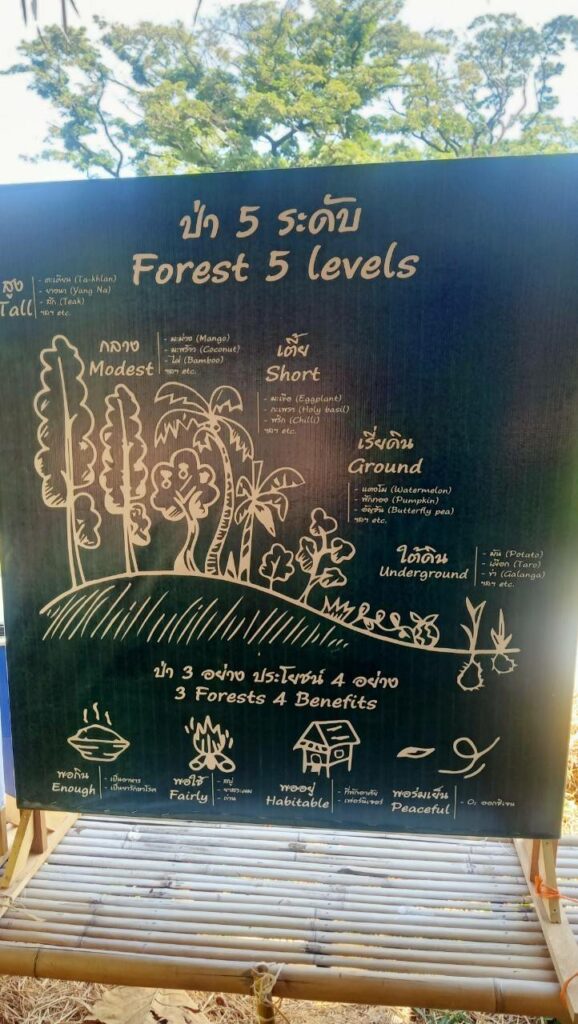 ป่า 5 ระดับ
Forest 5 levels
สูง
Tall
- ตะเคียน (Ta-khian)
- ยางนา (Yang Na)
- สัก (Teak)
ฯลฯ etc.
กลาง
Modest
- มะม่วง (Mango)
- มะพร้าว (Coconut)
- ไผ่ (Bamboo)
ฯลฯ etc.
เตี้ย
Short
- มะเขือ (Eggplant)
- กะเพรา (Holy basil)
- พริก (Chilli)
ฯลฯ etc.
เรี่ยดิน
Ground
- แตงโม (Watermelon)
- ฟักทอง (Pumpkin)
- อัญชัน (Butterfly pea)
ฯลฯ etc.
ใต้ดิน
Underground
- มัน (Potato)
- เผือก (Taro)
- ข่า (Galanga)
ฯลฯ etc.
ป่า 3 อย่าง ประโยชน์ 4 อย่าง
3 Forests 4 Benefits
พอกิน
Enough
- เป็นอาหาร
- เป็นยารักษาโรค
พอใช้
Fairly
- สบู่
- ยาสระผม
- ถ่าน
พออยู่
Habitable
- ที่พักอาศัย
- เฟอร์นิเจอร์
พอร่มเย็น
Peaceful
- O₂ ออกซิเจน